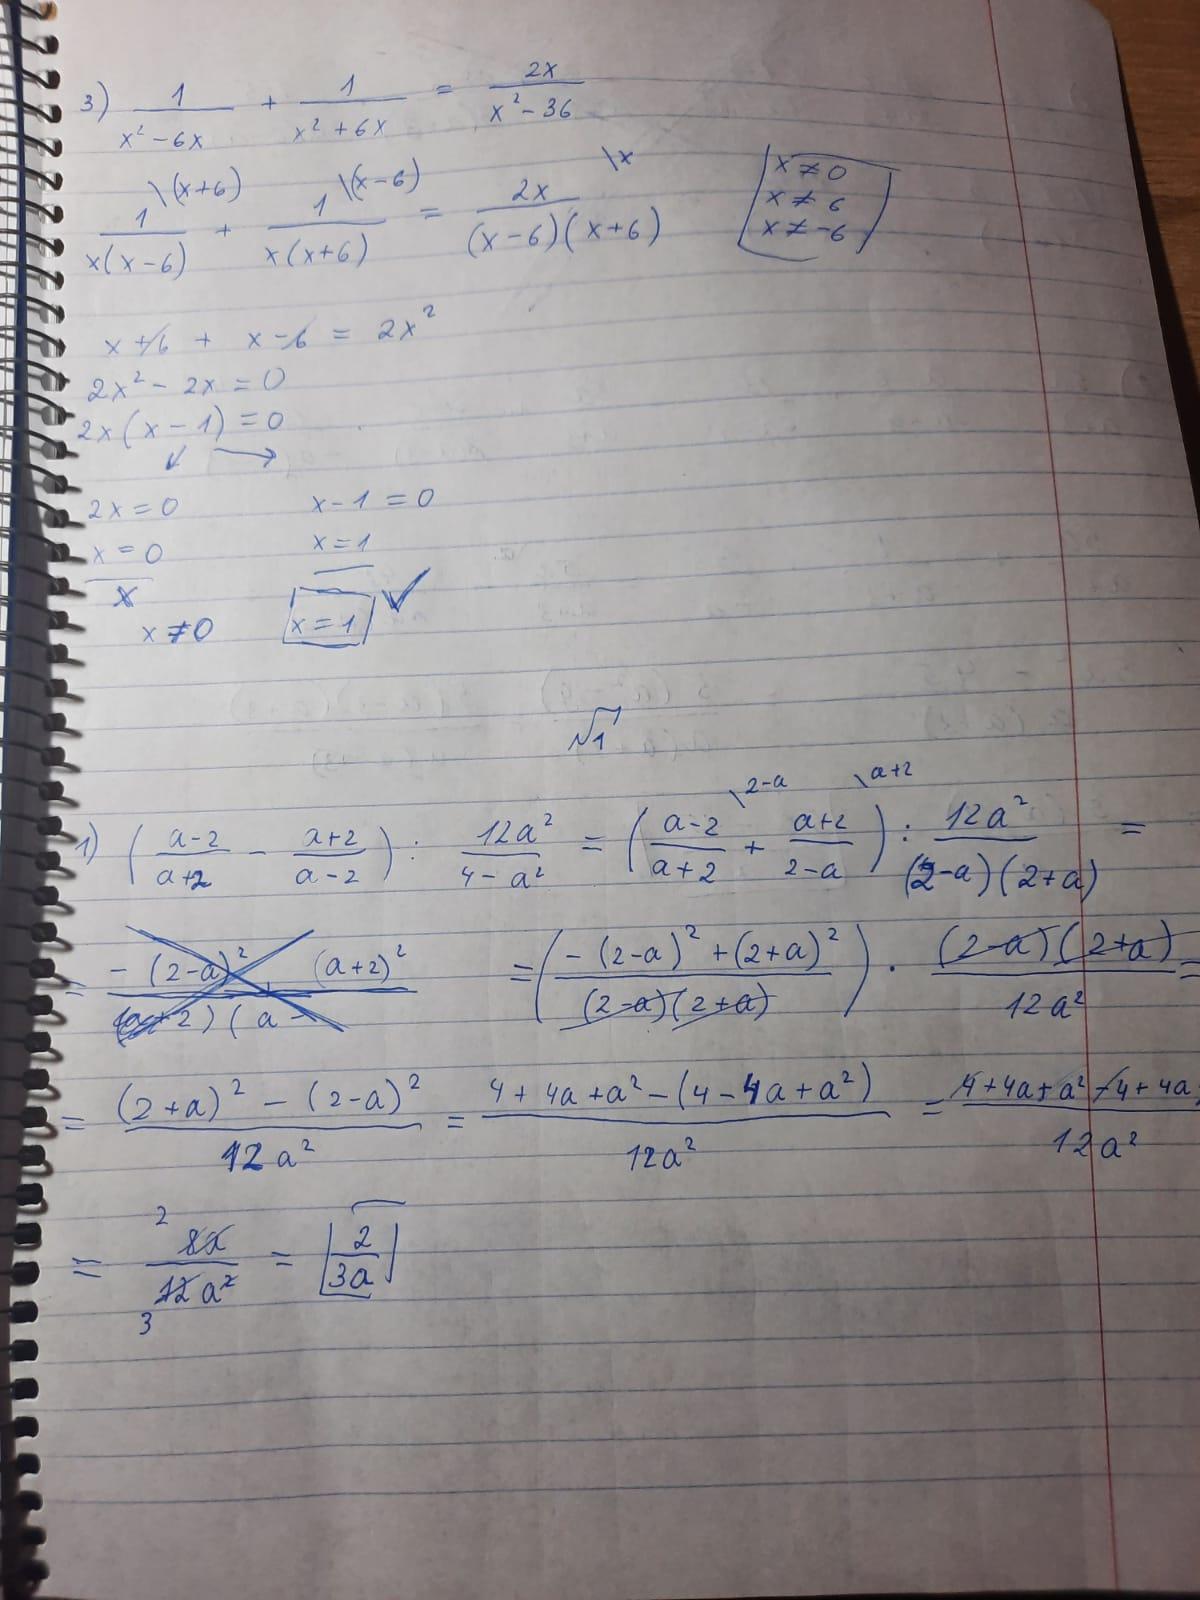 3) 1/(x² - 6x) + 1/(x² + 6x) = 2x/(x² - 36)
1/(x(x-6)) \(x+6) + 1/(x(x+6)) \(x-6) = 2x/((x-6)(x+6)) \x
x ≠ 0
x ≠ 6
x ≠ -6
x + 6 + x - 6 = 2x²
2x² - 2x = 0
2x(x - 1) = 0
2x = 0 x - 1 = 0
x = 0 x = 1
x ≠ 0 x = 1 ✓
№1
1) ((a-2)/(a+2) - (a+2)/(a-2)) : 12a²/(4-a²) = ((a-2)/(a+2) \2-a + (a+2)/(2-a) \a+2) : 12a²/((2-a)(2+a)) =
= ((-(2-a)² + (2+a)²)/((2-a)(2+a))) · ((2-a)(2+a))/(12a²) =
= ((2+a)² - (2-a)²)/(12a²) = (4 + 4a + a² - (4 - 4a + a²))/(12a²) = (4 + 4a + a² - 4 + 4a)/(12a²)
= 8a/(12a²) = 2/(3a)